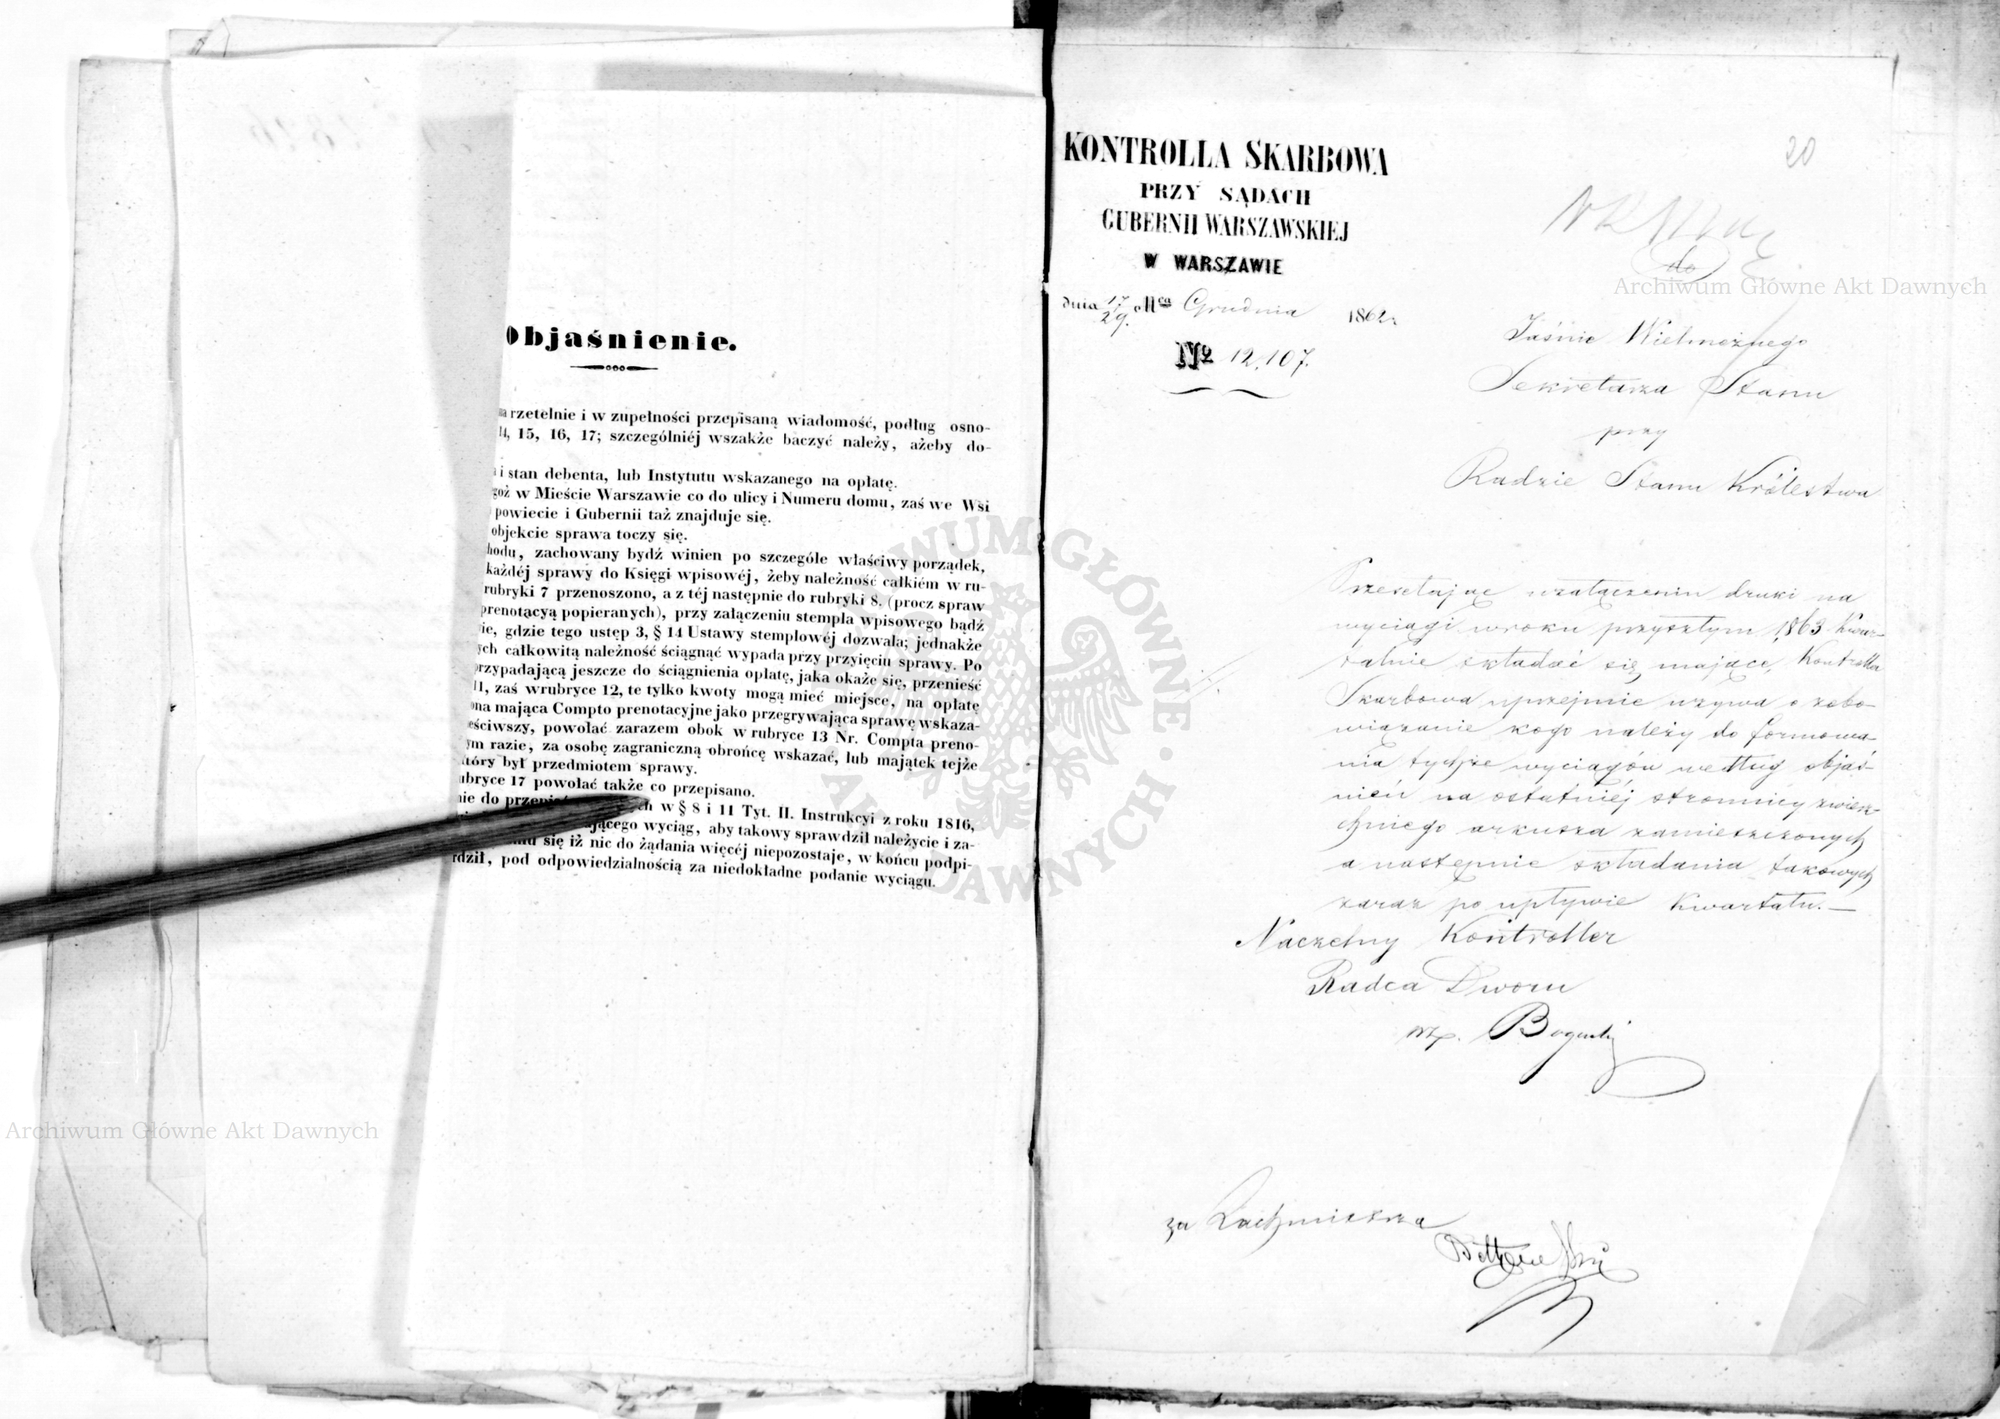 Objaśnienie.
rzetelnie i w zupełności przepisaną wiadomość, podług osno-
14, 15, 16, 17; szczególniéj wszakże baczyć należy, ażeby do-
i stan debenta, lub Instytutu wskazanego na opłatę.
goż w Mieście Warszawie co do ulicy i Numeru domu, zaś we Wsi
powiecie i Gubernii taż znajduje się.
objekcie sprawa toczy się.
hodu, zachowany bydź winien po szczególe właściwy porządek,
każdéj sprawy do Księgi wpisowéj, żeby należność całkiém w ru-
rubryki 7 przenoszono, a z téj następnie do rubryki 8. (procz spraw
prenotacyą popieranych), przy załączeniu stempla wpisowego bądź
ie, gdzie tego ustęp 3, § 14 Ustawy stemplowéj dozwala; jednakże
ych całkowitą należność ściągnąć wypada przy przyięciu sprawy. Po
rzypadającą jeszcze do ściągnienia opłatę, jaka okaże się, przenieść
11, zaś w rubryce 12, te tylko kwoty mogą mieć miejsce, na opłatę
ona mająca Compto prenotacyjne jako przegrywająca sprawę wskaza-
eściwszy, powołać zarazem obok w rubryce 13 Nr. Compta preno-
ym razie, za osobę zagraniczną obrońcę wskazać, lub majątek tejże
który był przedmiotem sprawy.
ubryce 17 powołać także co przepisano.
nie do w § 8 i 11 Tyt. II. Instrukcyi z roku 1816,
jącego wyciąg, aby takowy sprawdził należycie i za-
się iż nic do żądania więcéj niepozostaje, w końcu podpi-
rdził, pod odpowiedzialnością za niedokładne podanie wyciągu.
KONTROLLA SKARBOWA
PRZY SĄDACH
GUBERNII WARSZAWSKIEJ
W WARSZAWIE
dnia 17/29 Mca Grudnia 1862 r.
No 12,107.
20
do
Jaśnie Wielmożnego
Sekretarza Stanu
przy
Radzie Stanu Królestwa
Przesełając w załączeniu druki na
wyciągi w roku przyszłym 1863 kwar-
talnie składać się mające, Kontrolla
Skarbowa uprzejmie wzywa o zobo-
wiązanie kogo należy do formowa-
nia tychże wyciągów według objaś-
nień na ostatniéj stronnicy zwierz-
chniego arkusza zamieszczonych
a następnie składania takowych
zaraz po upływie kwartału.—
Naczelny Kontroller
Radca Dworu
Za Rachmistrza
Archiwum Główne Akt Dawnych
Archiwum Główne Akt Dawnych
ARCHIWUM GŁÓWNE AKT DAWNYCH